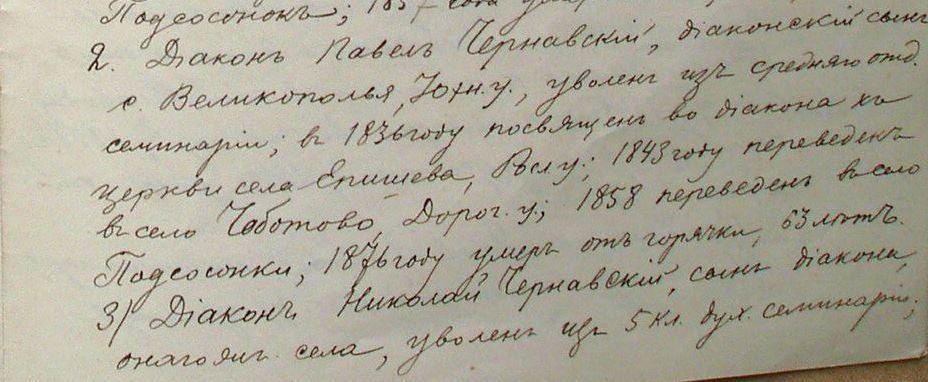 Подсосонокъ; 1857 года
2. Діаконъ Павелъ Чернавскій, діаконскій сынъ
с. Великополья, Юхн. у., уволенъ изъ средняго отд.
семинаріи; въ 1836 году посвященъ во діакона къ
церкви села Епишева, Росл. у.; 1843 году переведенъ
въ село Чоботово, Дорог. у.; 1858 переведенъ въ село
Подсосонки; 1876 году умеръ отъ горячки, 63 лѣтъ.
3) Діаконъ Николай Чернавскій, сынъ діакона,
онаго же села, уволенъ изъ 5 кл. дух. семинаріи;